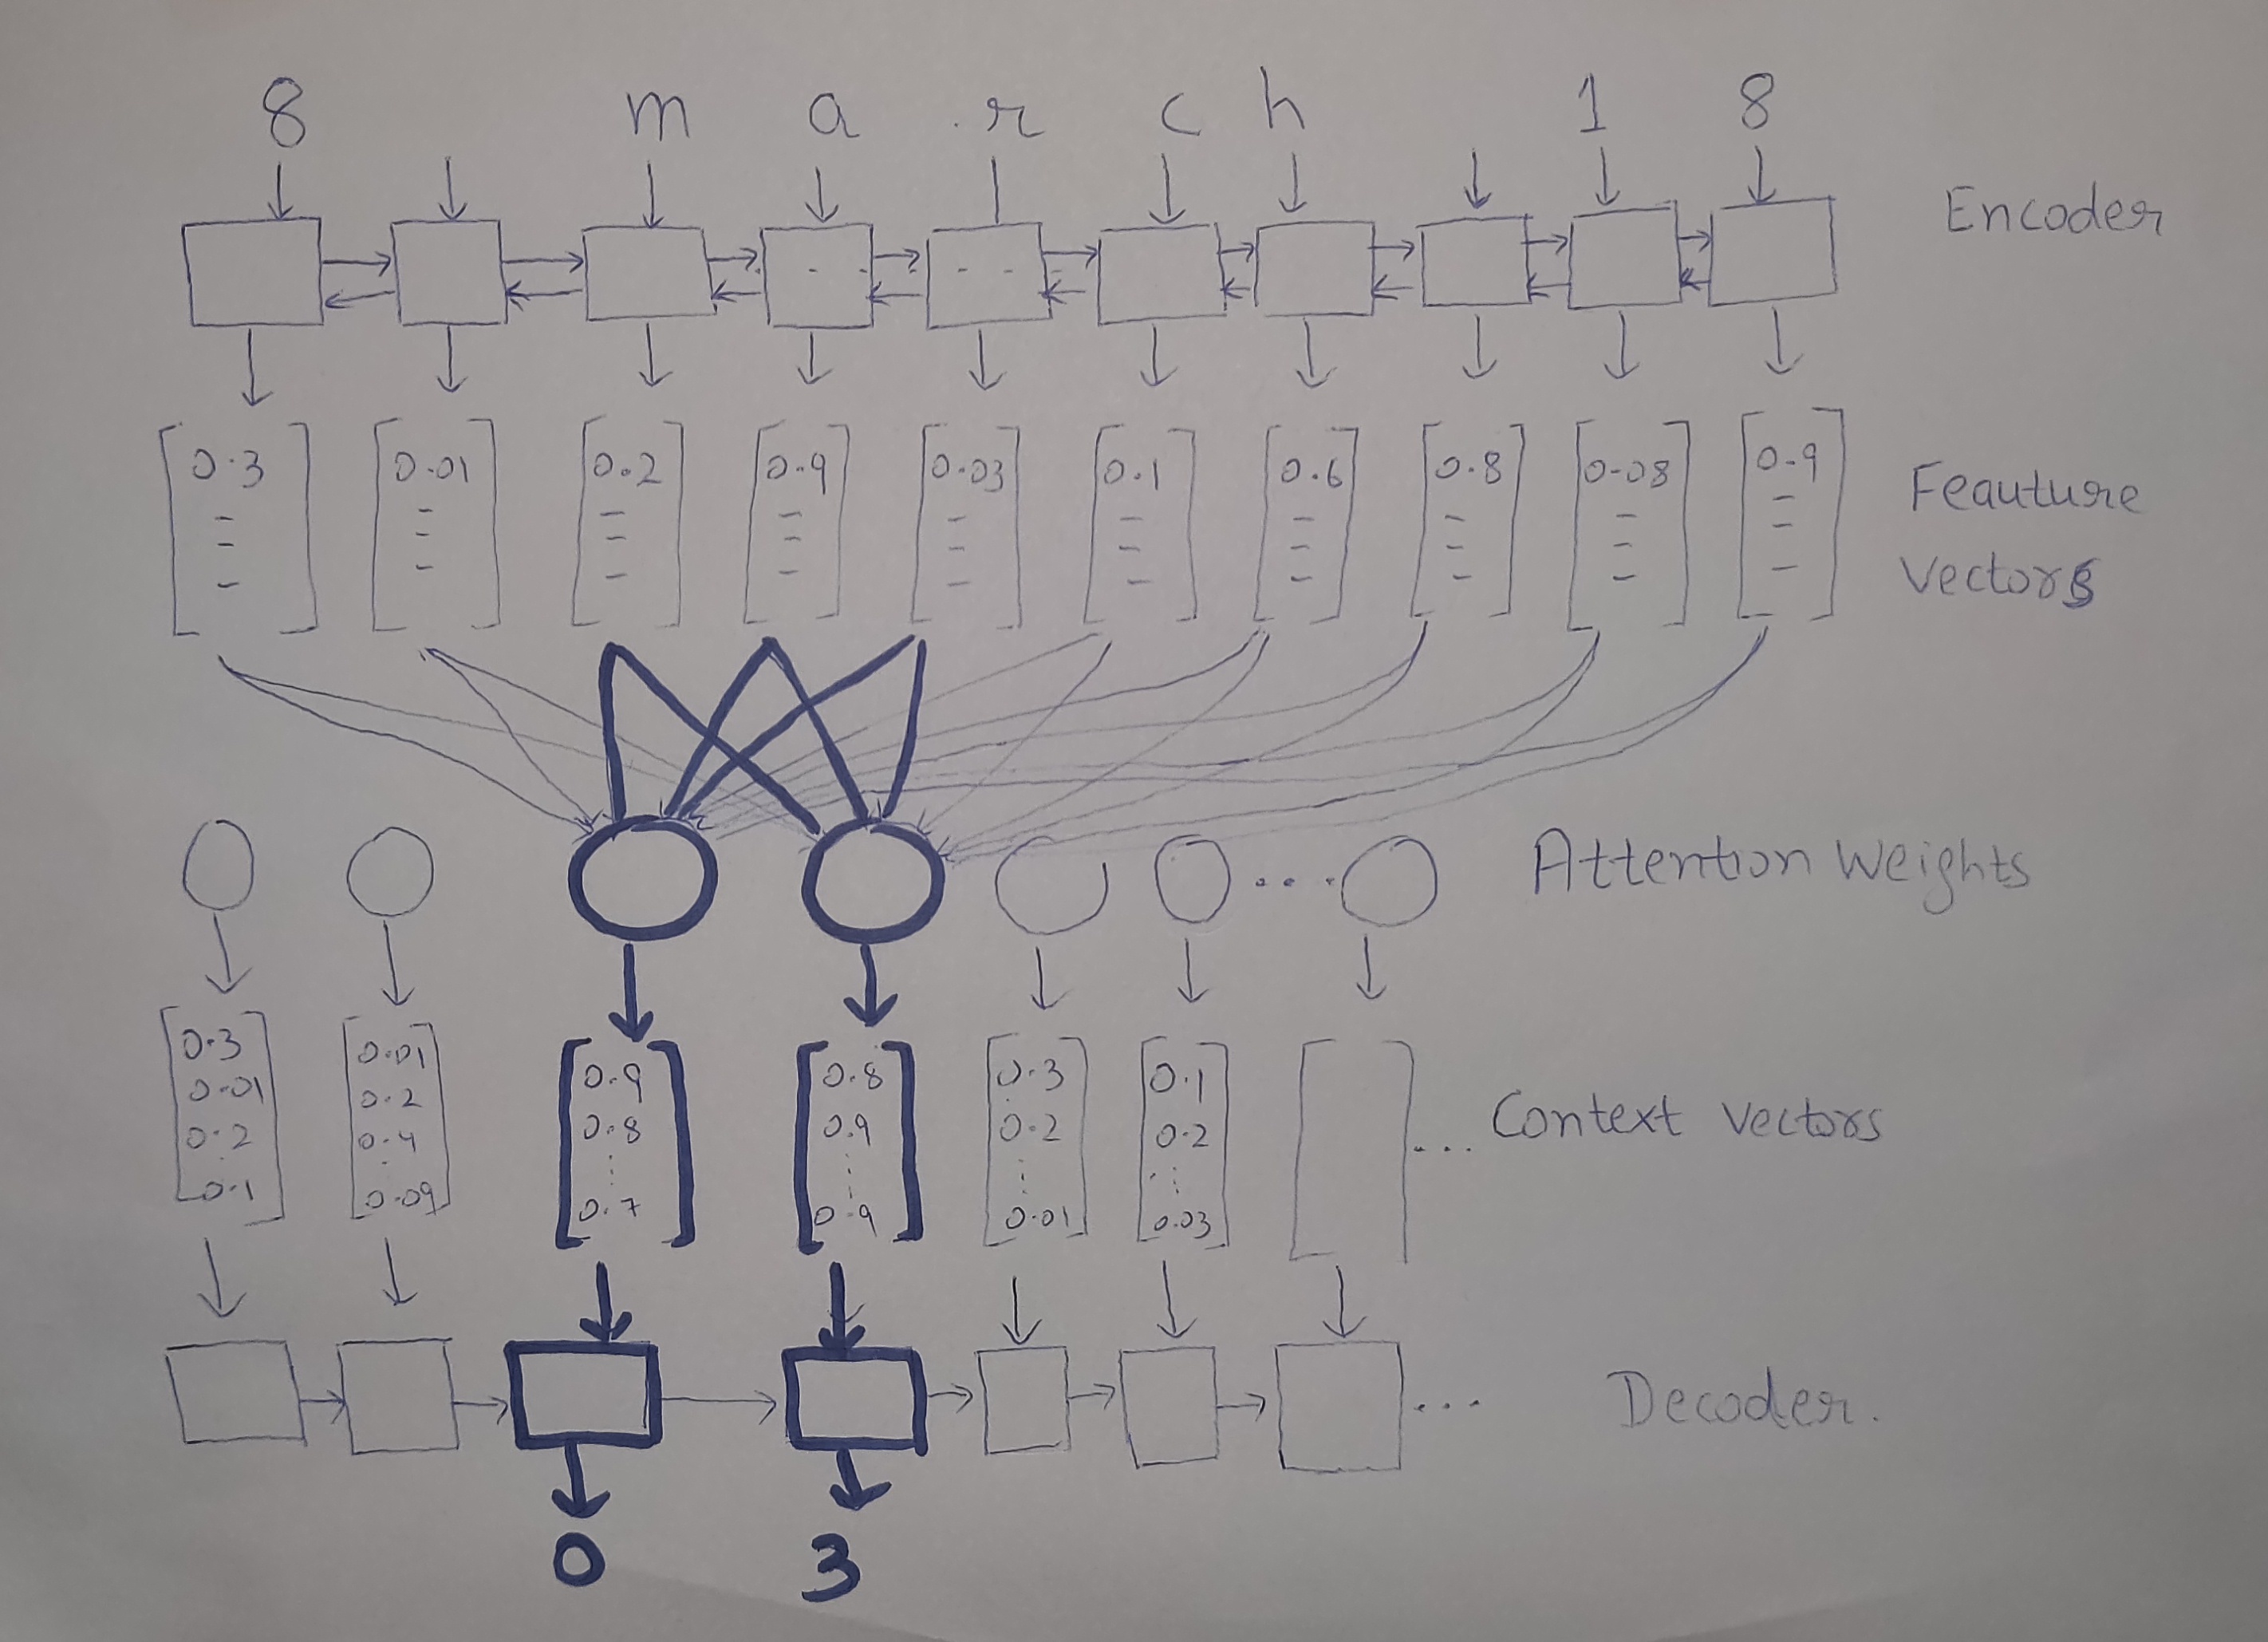 8 m a r c h 1 8
Encoder
0.3 0.01 0.2 0.9 0.03 0.1 0.6 0.8 0.08 0.9
Feauture
Vectors
Attention Weights
0.3 0.01 0.9 0.8 0.3 0.1
0.01 0.2 0.8 0.9 0.2 0.2
0.2 0.4 ⋮ ⋮ ⋮ ⋮
0.1 0.09 0.7 0.9 0.01 0.03
... Context Vectors
... Decoder.
0 3